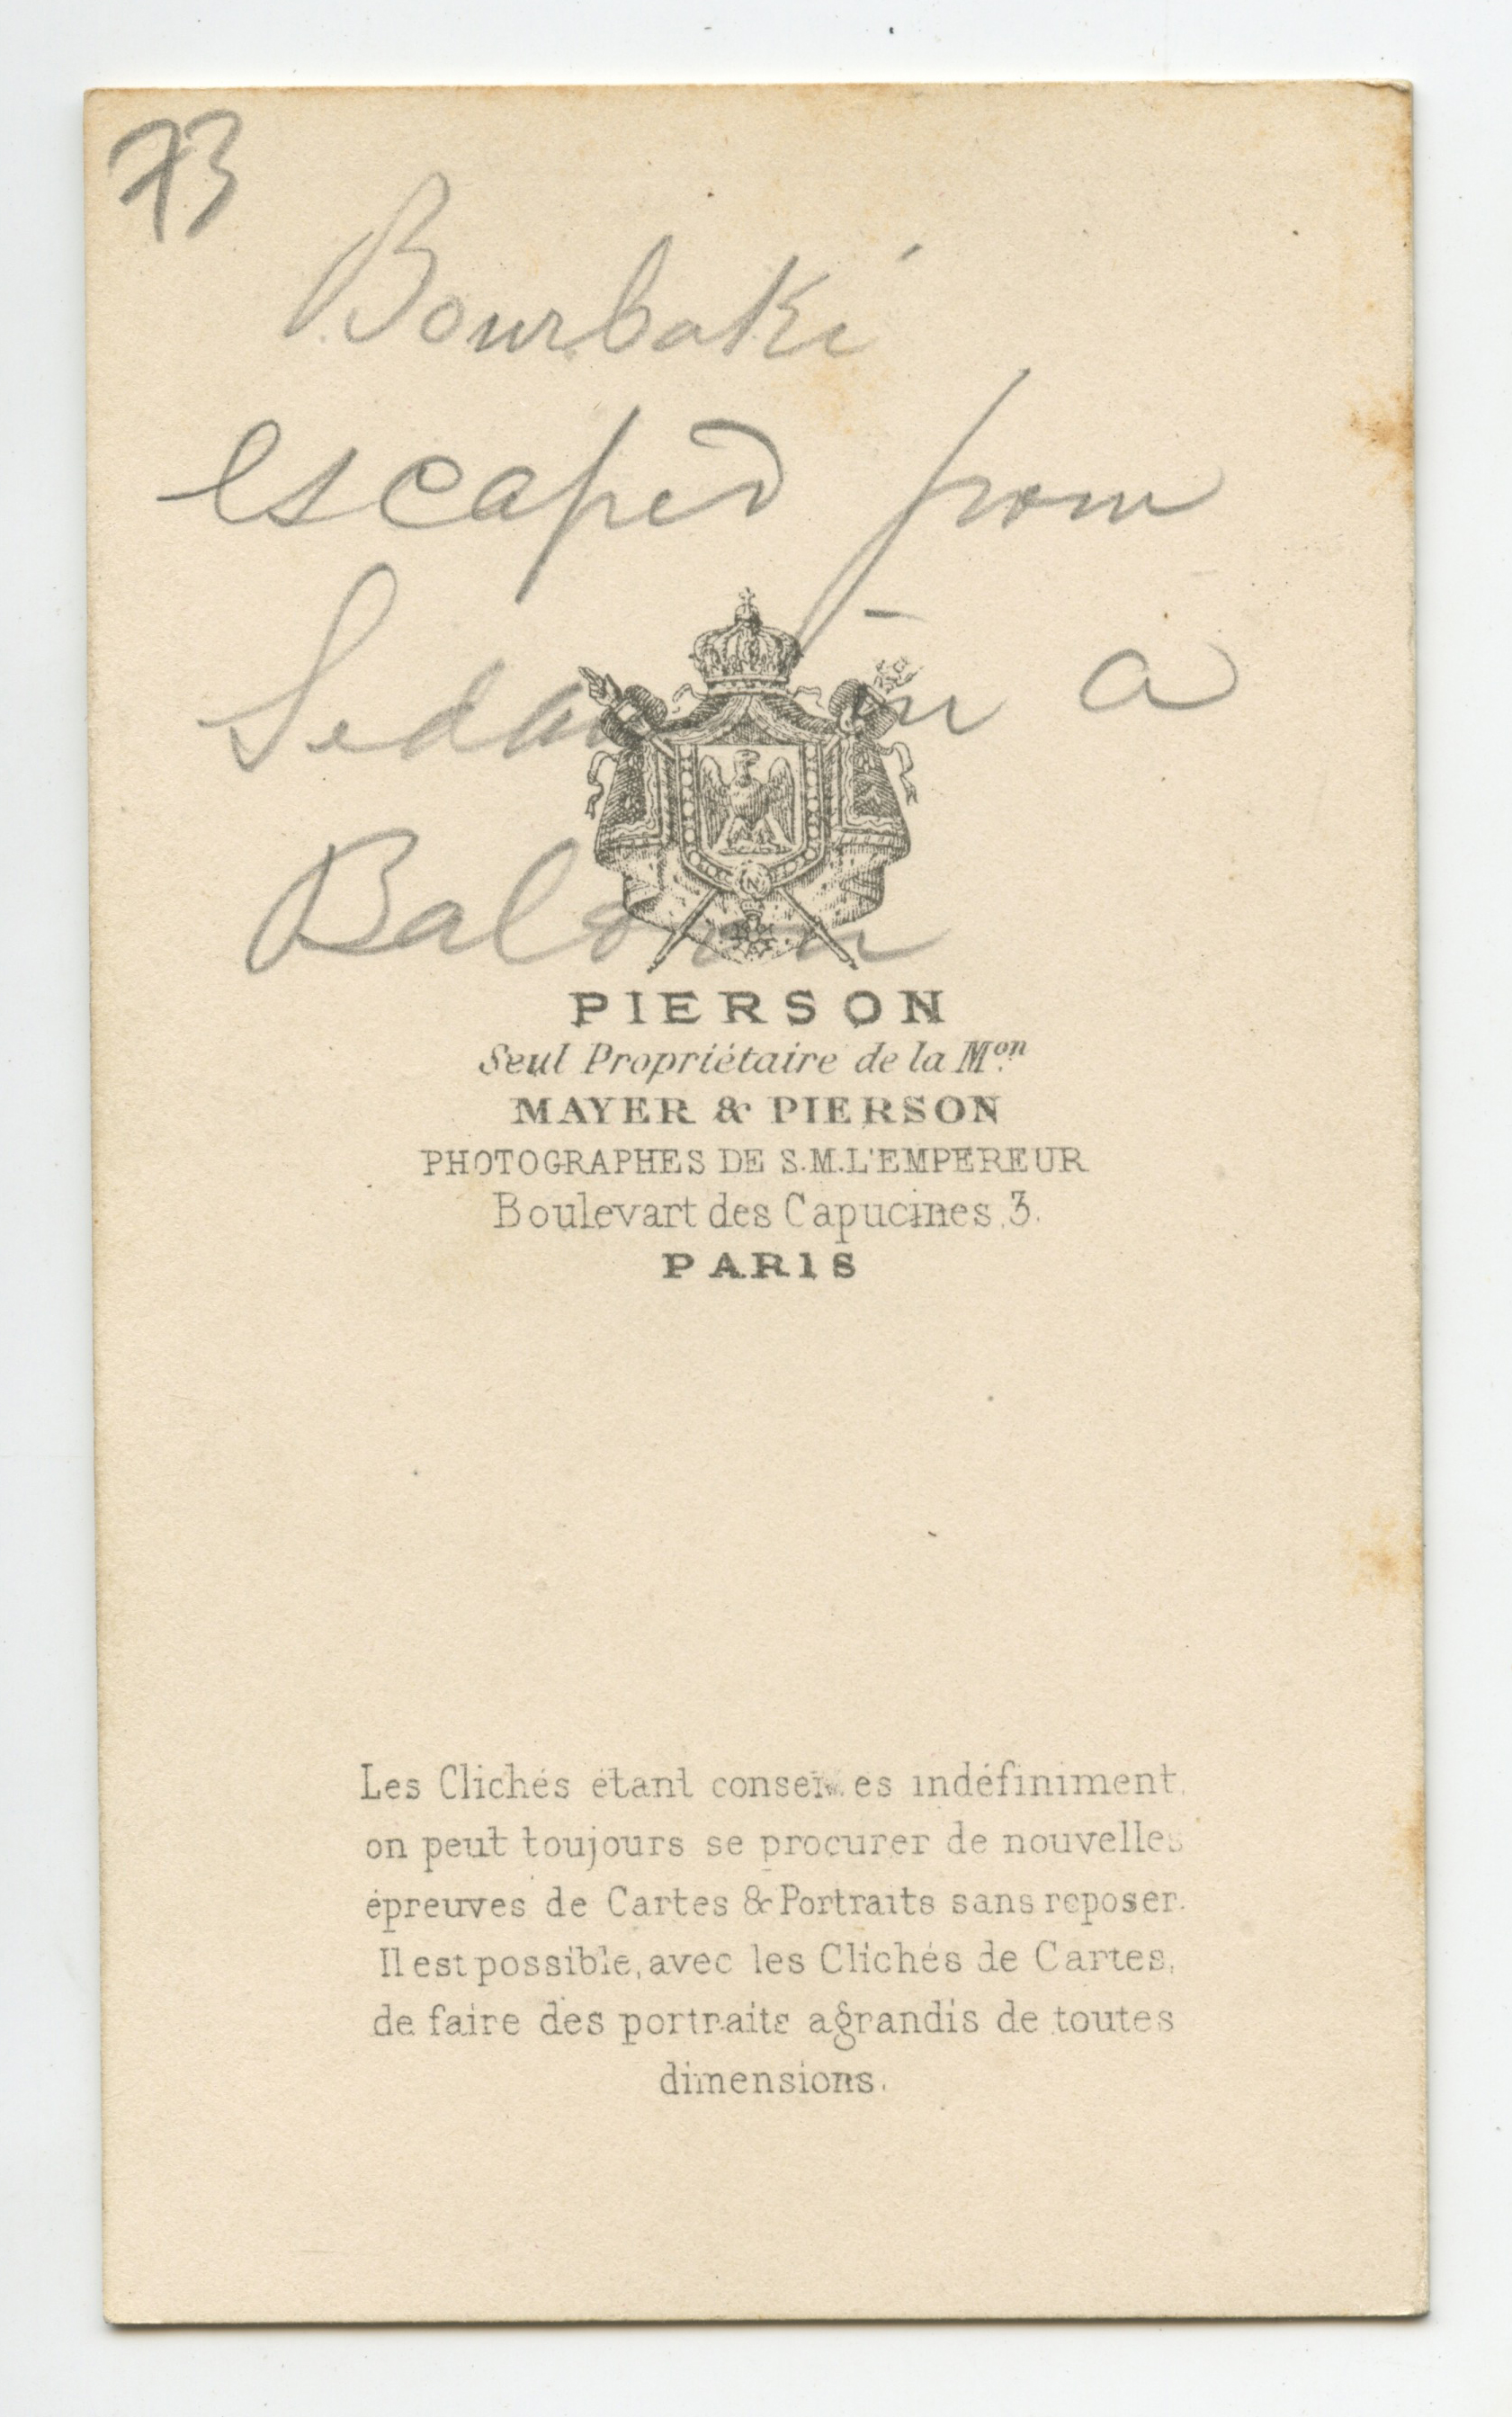 73
Bourbaki
escaped from
Sedan in a
Baloon
N
PIERSON
Seul Propriétaire de la Mon
MAYER & PIERSON
PHOTOGRAPHES DE S.M.L'EMPEREUR
Boulevart des Capucines, 3.
PARIS
Les Clichés étant conservés indéfiniment,
on peut toujours se procurer de nouvelles
épreuves de Cartes & Portraits sans reposer.
Il est possible, avec les Clichés de Cartes,
de faire des portraits agrandis de toutes
dimensions.